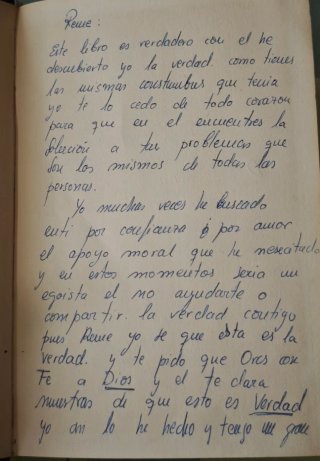 Reme:
Este libro es verdadero con el he
descubierto yo la verdad como tienes
las mismas constumbres que tenia
yo te lo cedo de todo corazon
para que en el encuentres la
Solución a tus problemas que
son los mismos de todas las
personas.
Yo muchas veces he buscado
enti por confianza o por amor
el apoyo moral que he nesecitado
y en estos momentos seria un
egoista el no ayudarte o
compartir. la verdad contigo
pues Reme yo se que esta es la
verdad. y te pido que Ores con
Fe a Dios y el te dara
muestras de que esto es Verdad
yo asi lo he hecho y tengo un gran